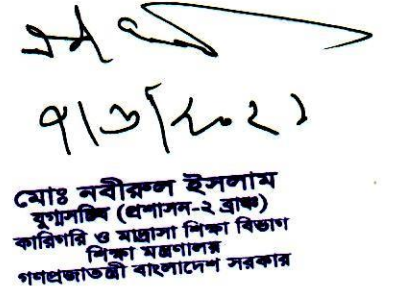 ৭/৩/২০২১
মোঃ নবীরুল ইসলাম
যুগ্মসচিব (প্রশাসন-২ ব্রাঞ্চ)
কারিগরি ও মাদ্রাসা শিক্ষা বিভাগ
শিক্ষা মন্ত্রণালয়
গণপ্রজাতন্ত্রী বাংলাদেশ সরকার